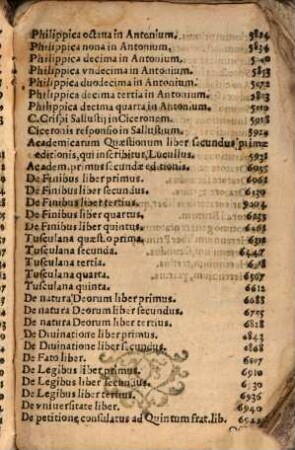 Philippica octaua in Antonium. 5824
Philippica nona in Antonium. 5834
Philippica decima in Antonium.
Philippica vndecima in Antonium. 5853
Philippica duodecima in Antonium.
Philippica decima tertia in Antonium.
Philippica decima quarta in Antonium.
C. Crispi Sallustij in Ciceronem. 5918
Ciceronis responsio in Sallustium. 5924
Academicarum Quæstionum liber secundus primæ
editionis, qui inscribitur, Lucullus. 5931
Academ. primus secundæ editionis. 6055
De Finibus liber primus.
De Finibus liber secundus.
De Finibus liber tertius.
De Finibus liber quartus.
De Finibus liber quintus.
Tusculana quæst. prima.
Tusculana secunda.
Tusculana tertia.
Tusculana quarta. 6567
Tusculana quinta. 6612
De natura Deorum liber primus. 6688
De natura Deorum liber secundus. 6755
De natura Deorum liber tertius. 6818
De Diuinatione liber primus. 6843
De Diuinatione liber secundus. 6868
De Fato liber.
De Legibus liber primus.
De Legibus liber secundus.
De Legibus liber tertius. 6936
De vniuersitate liber.
De petitione consulatus ad Quintum frat. lib.